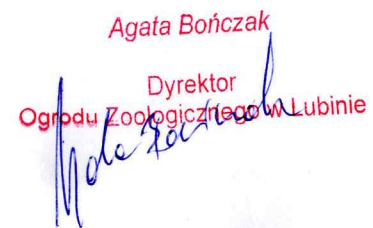 Agata Bończak
Dyrektor
Ogrodu Zoologicznego w Lubinie